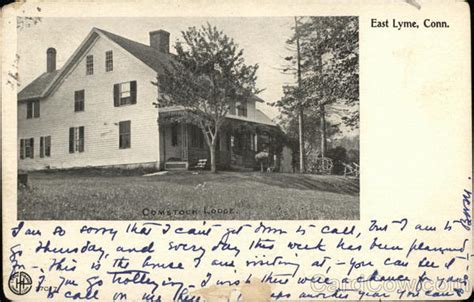 East Lyme, Conn.
COMSTOCK LODGE.
I am so sorry that I can't get down to call, but I am to
go Thursday, and every day this week has been planned
for, this is the house I am visiting at - you can see it
if you go trolleying, I wish there were a chance for
to call on me these perhaps another year you
CardCow.com